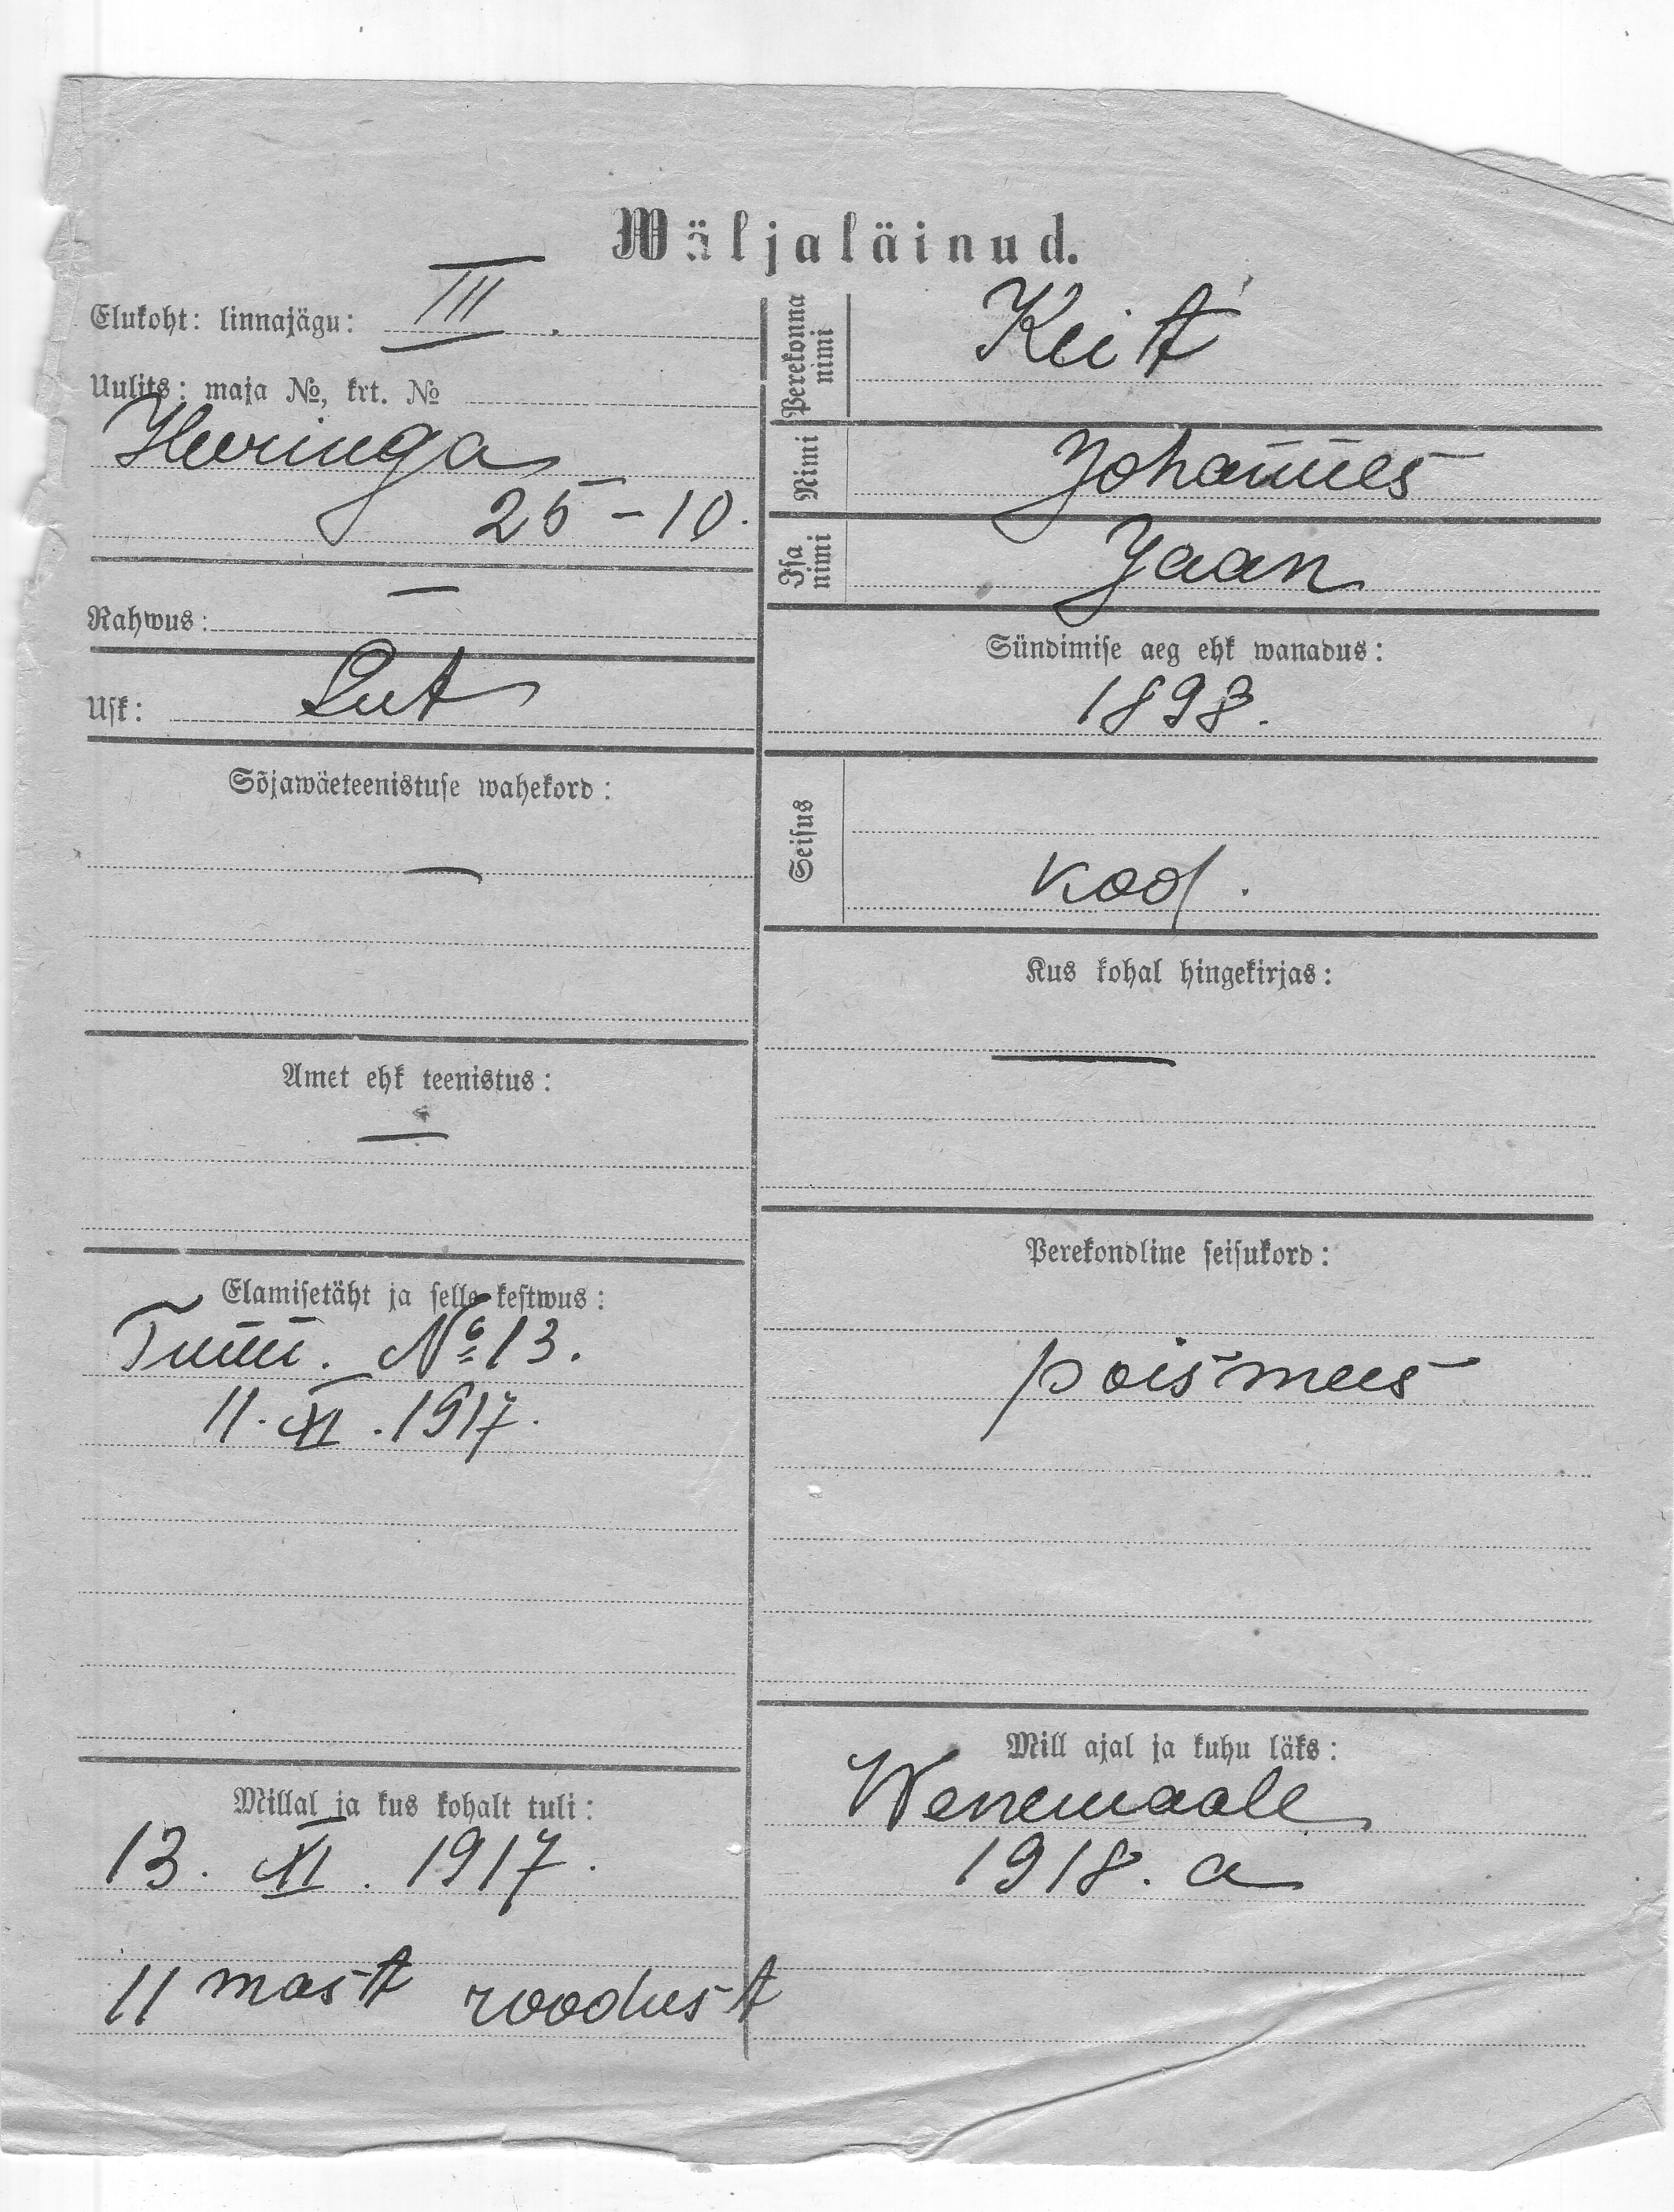 Wäljaläinud.
Elukoht: linnajägu: III.
Uulits: maja №, krt. №
Heeringa
25-10.
Rahwus: —
Usk: Lut
Sõjawäeteenistuse wahekord:
—
Amet ehk teenistus:
—
Elamisetäht ja selle kestwus:
Tunn. № 13.
11. XI. 1917.
Millal ja kus kohalt tuli:
13. XI. 1917.
11 mast roodust
Perekonna nimi
Nimi Johannes
Isa nimi Jaan
Sündimise aeg ehk wanadus:
1898.
Seisus
kod.
Kus kohal hingekirjas:
—
Perekondline seisukord:
poismees
Mill ajal ja kuhu läks:
Wenemaale
1918. a